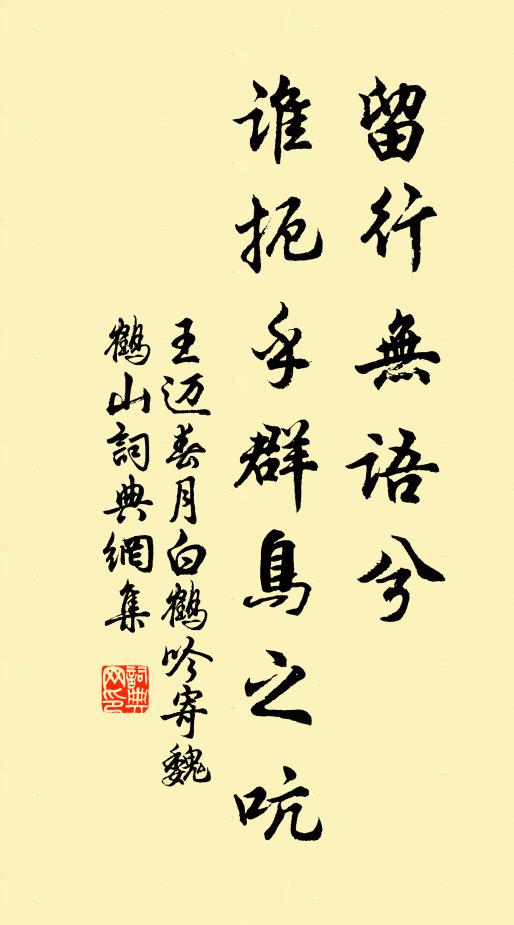 留行無語兮
誰扼乎群鳥之吭
王迈春月白鶴吟寄魏
鶴山詞典網集
詞典网印